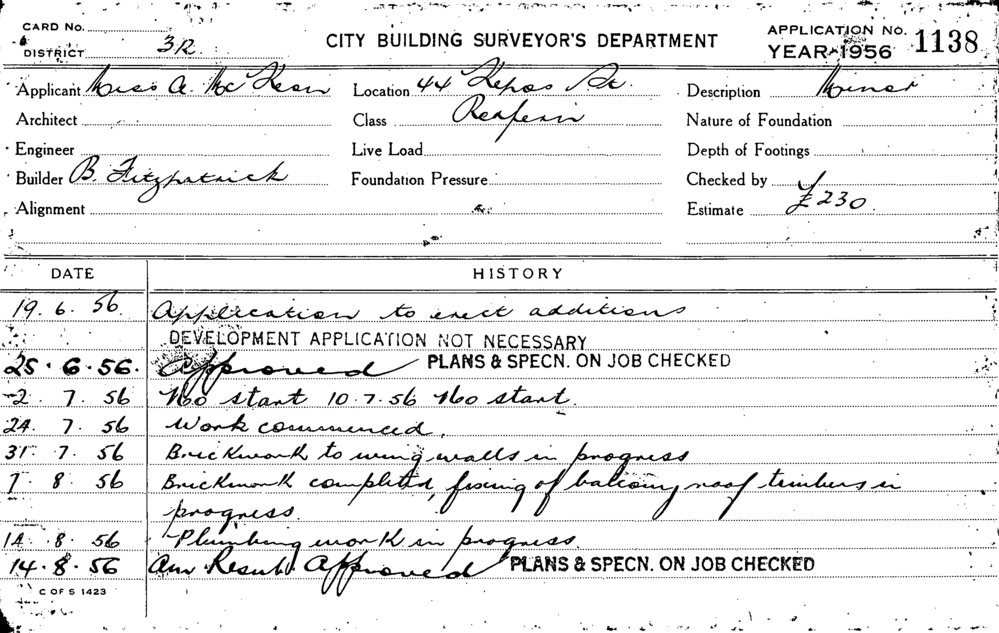 CARD No.
DISTRICT 3R
CITY BUILDING SURVEYOR'S DEPARTMENT
APPLICATION No. 1138
YEAR 1956
Applicant Miss A. McKeon Location 44 Kepos St. Description Minor
Architect Class Redfern Nature of Foundation
Engineer Live Load Depth of Footings
Builder B. Fitzpatrick Foundation Pressure Checked by
Alignment Estimate £230
DATE HISTORY
19. 6. 56. Application to erect additions
DEVELOPMENT APPLICATION NOT NECESSARY
25. 6. 56. Approved PLANS & SPECN. ON JOB CHECKED
2. 7. 56 No start 10.7.56 No start.
24. 7. 56 Work commenced.
31. 7. 56 Brickwork to wing walls in progress
7. 8. 56 Brickwork completed, fixing of balcony roof timbers in
progress.
14. 8. 56 Plumbing work in progress.
14. 8. 56 Approved PLANS & SPECN. ON JOB CHECKED
C OF S 1423